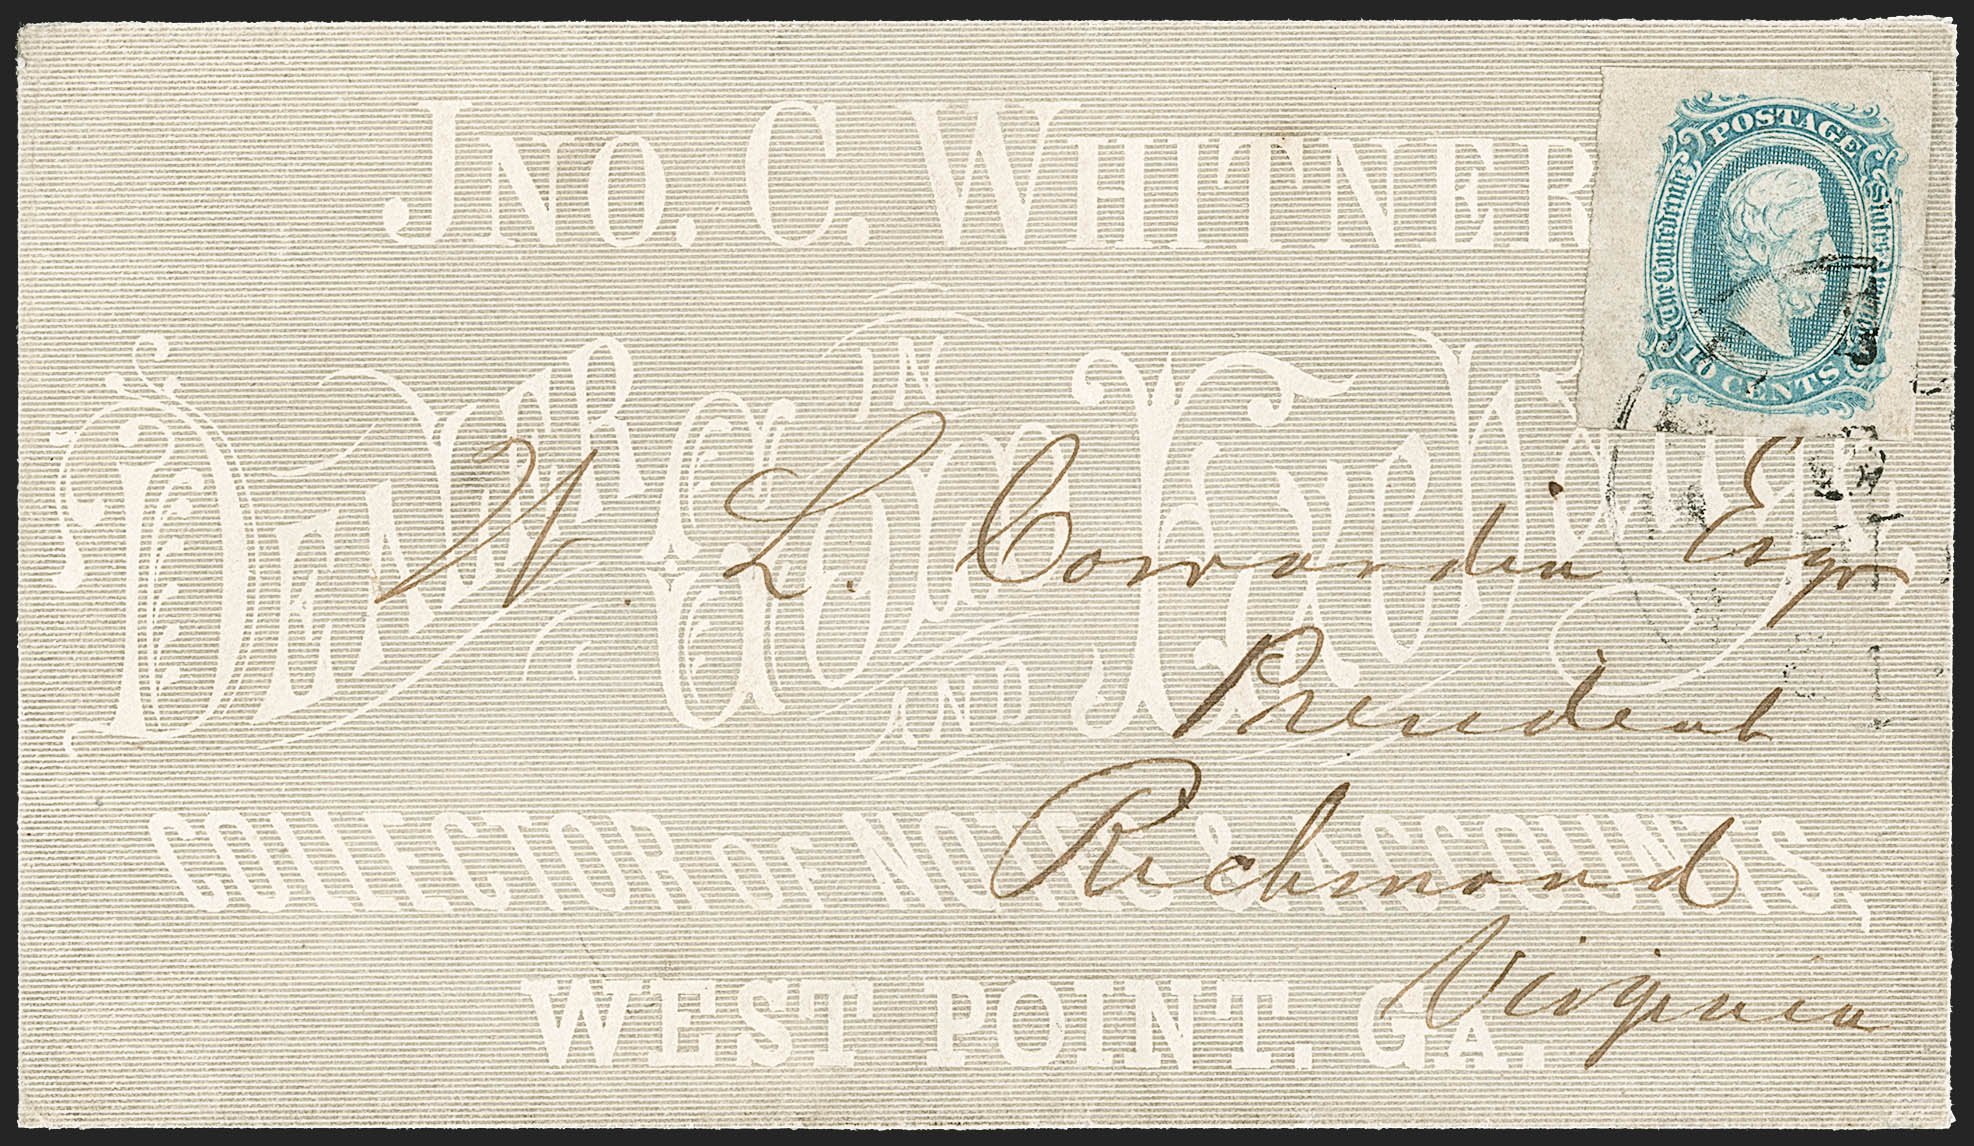 JNO. C. WHITNER
POSTAGE
The Confederate States of America
10 CENTS
DEALER IN GOLD AND EXCHANGE,
COLLECTOR OF NOTES & ACCOUNTS,
WEST POINT. GA.
W. L. Cowardin Esqr
President
Richmond
Virginia